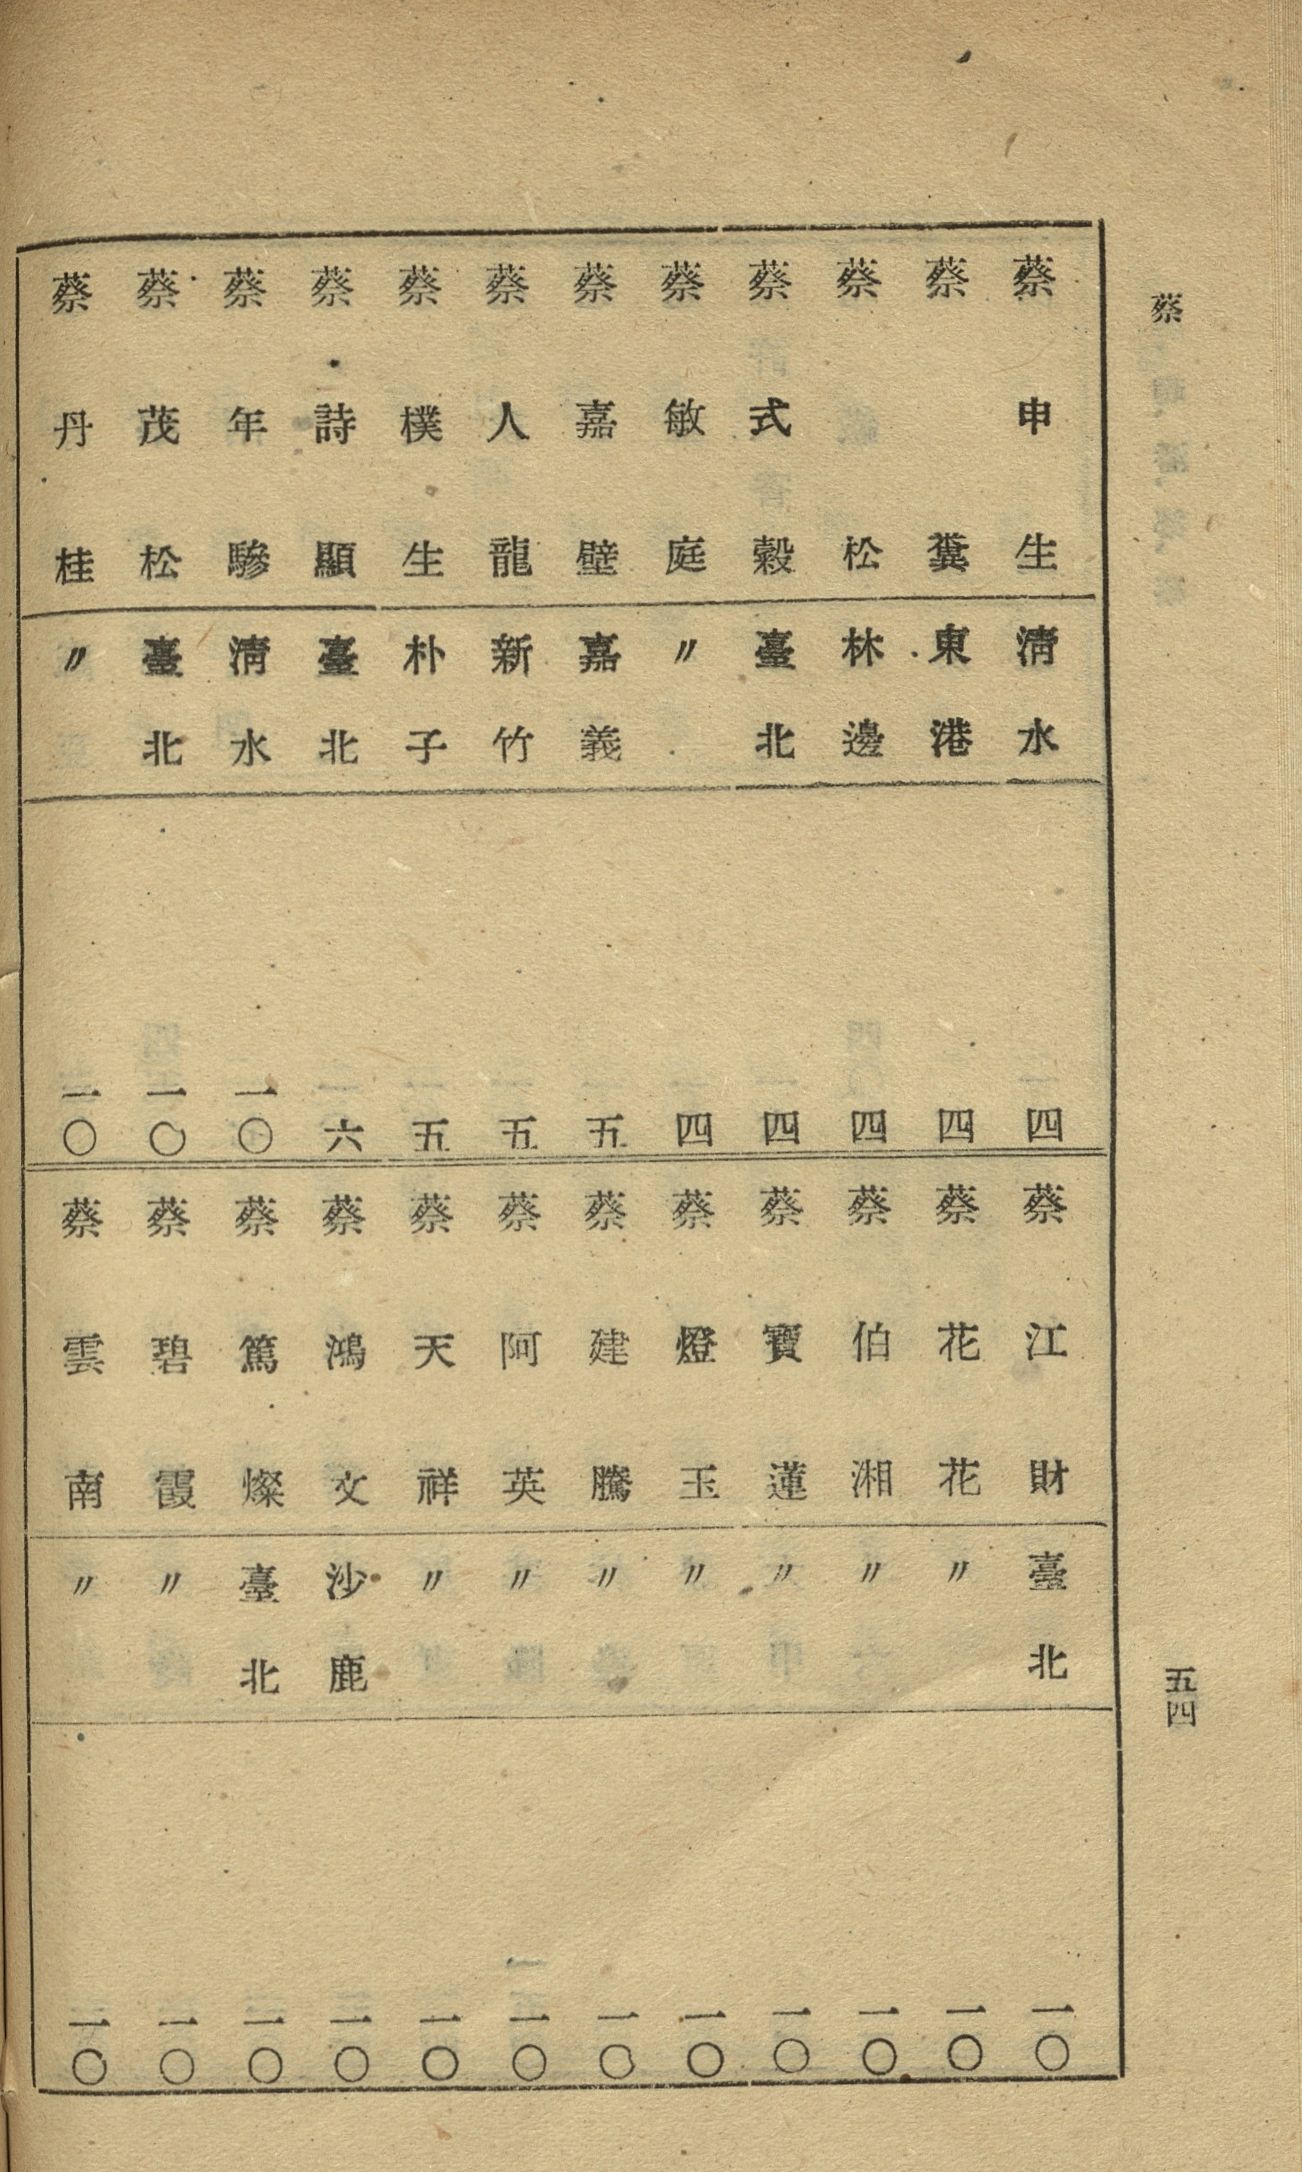 蔡
五四
蔡申生 清水 四
蔡糞 東港 四
蔡松 林邊 四
蔡式穀 臺北 四
蔡敏庭 〃 四
蔡嘉壁 嘉義 五
蔡人龍 新竹 五
蔡樸生 朴子 五
蔡詩顯 臺北 六
蔡年驂 清水 一〇
蔡茂松 臺北 一〇
蔡丹桂 〃 一〇
蔡江財 臺北 一〇
蔡花花 〃 一〇
蔡伯湘 〃 一〇
蔡寶蓮 〃 一〇
蔡燈玉 〃 一〇
蔡建騰 〃 一〇
蔡阿英 〃 一〇
蔡天祥 〃 一〇
蔡鴻文 沙鹿 一〇
蔡篤燦 臺北 一〇
蔡碧霞 〃 一〇
蔡雲南 〃 一〇